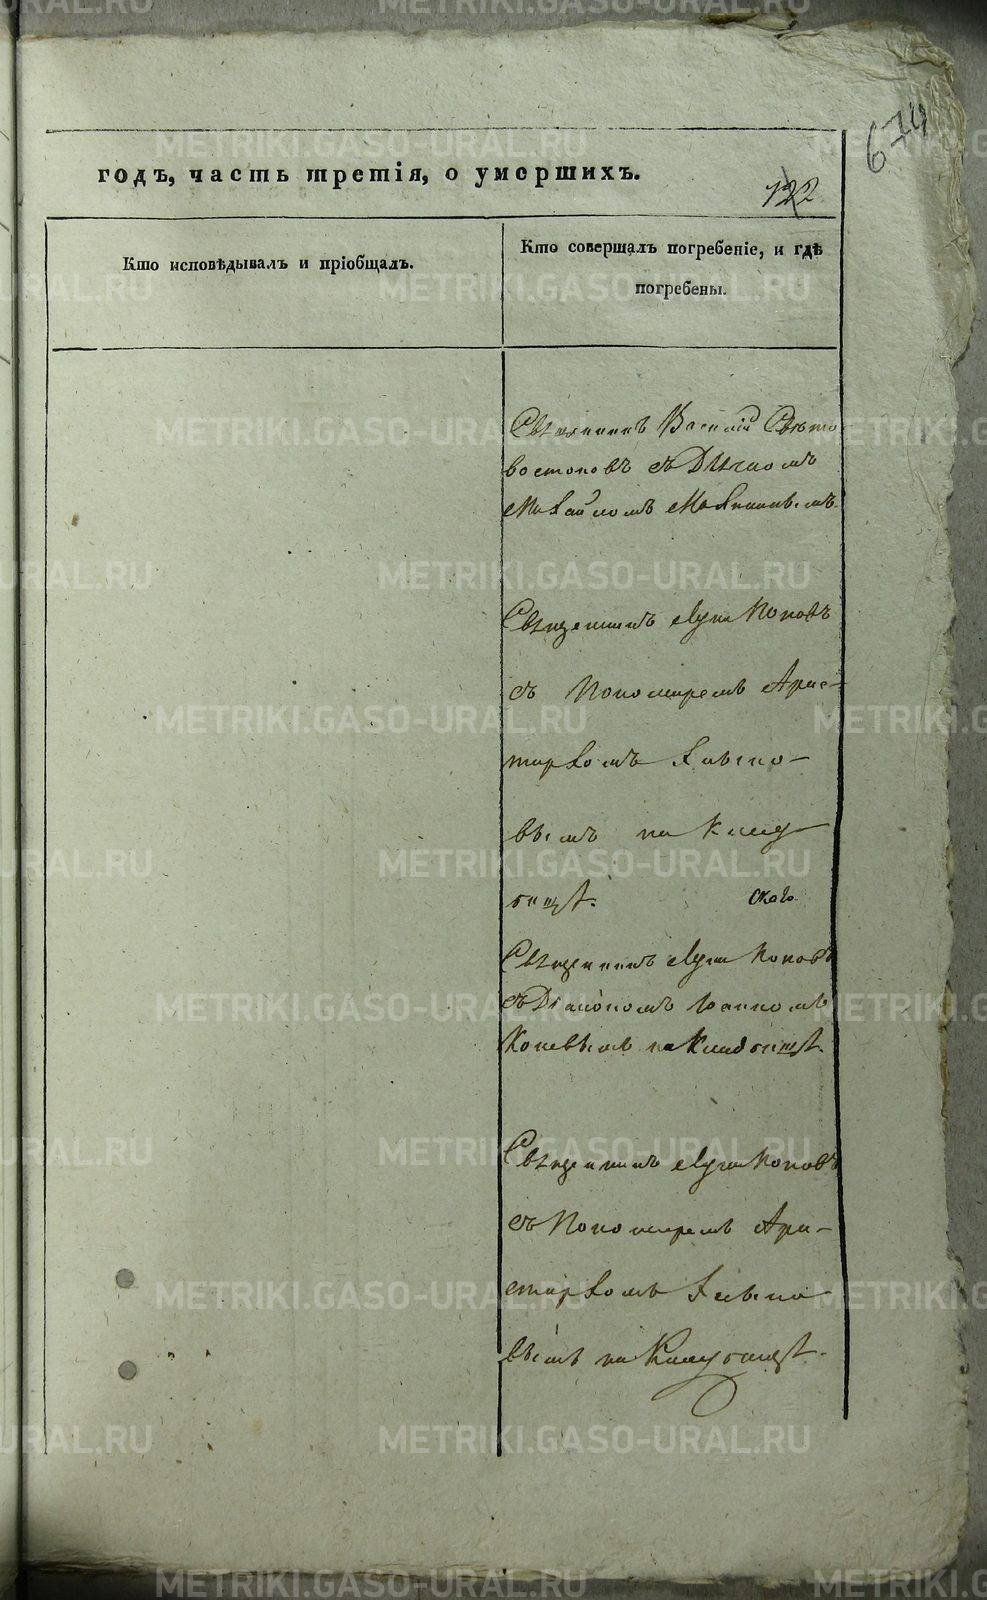 674
годъ, часть третія, о умершихъ.
122
Кто исповѣдывалъ и пріобщалъ.
Кто совершалъ погребеніе, и гдѣ
погребены.
Священникъ Василій Свѣто
востоковъ съ Дьячкомъ
Михайломъ
Священникъ Лука Поповъ
съ Пономаремъ Арис-
тархомъ
вымъ на Клад
бищѣ.
Священникъ Лука Поповъ
съ Діакономъ Іоанномъ
на Кладбищѣ.
Священникъ Лука Поповъ
съ Пономаремъ Ари-
стархомъ
вымъ на Кладбищѣ.
METRIKI.GASO-URAL.RU